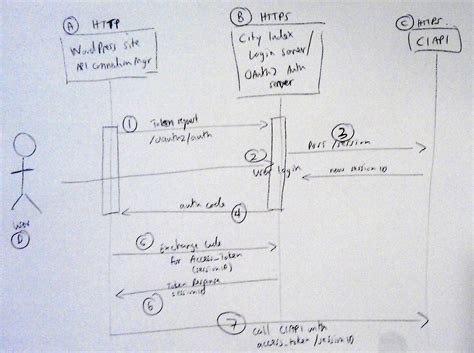 A HTTP
WordPress site
API Connection Mgr
B HTTPS
City Index
Login Server/
OAuth2 Auth
Server
C HTTPS
CIAPI
1 Token request
/oauth2/auth
2
User login
3
Post /session
new session ID
auth code
4
user
D
5 Exchange Code
for Access_Token
(session ID)
Token Response
session ID
6
7 call CIAPI with
access_token /session ID